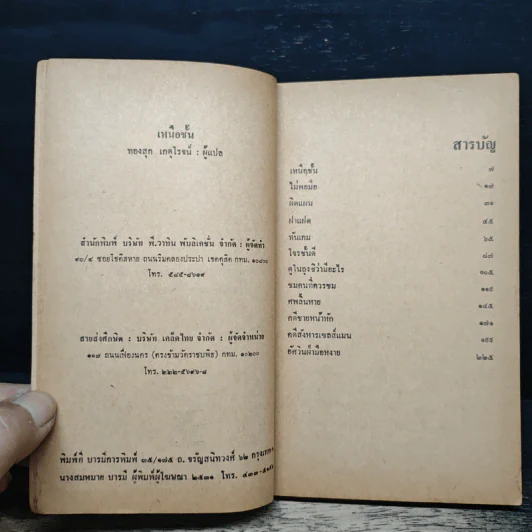 เหนือชั้น
ทองสุก เกตุโรจน์ : ผู้แปล
สำนักพิมพ์ บริษัท พี.วาทิน พับลิเคชั่น จำกัด : ผู้จัดทำ
๙๐/๔ ซอยโชคสหาย ถนนริมคลองประปา เขตดุสิต กทม. ๑๐๘๐๐
โทร. ๕๘๕-๘๖๑๙
สายส่งศึกษิต : บริษัท เคล็ดไทย จำกัด : ผู้จัดจำหน่าย
๑๑๗ ถนนเฟื่องนคร (ตรงข้ามวัดราชบพิธ) กทม. ๑๐๒๐๐
โทร. ๒๒๒-๕๖๙๖-๘
พิมพ์ที่ บารมีการพิมพ์ ๓๕/๑๗๕ ถ. จรัญสนิทวงศ์ ๖๒ กรุงเทพ
นางสมหมาย บารมี ผู้พิมพ์ผู้โฆษณา ๒๕๓๑ โทร. ๔๓๓-
สารบัญ
เหนือชั้น ๗
ไม่พอมือ ๑๗
ผิดแผน ๓๑
ฝาแฝด ๔๕
ทันเกม ๖๕
โจรชั้นดี ๘๗
ดูในถุงซิว่ามีอะไร ๑๐๕
ชมคนที่ควรชม ๑๑๕
ศพล้นหาย ๑๔๕
คดีชายหน้าหัก ๑๗๑
คดีสังหารเซลส์แมน ๑๙๙
อัศวินฝ่ามือหงาย ๒๒๕